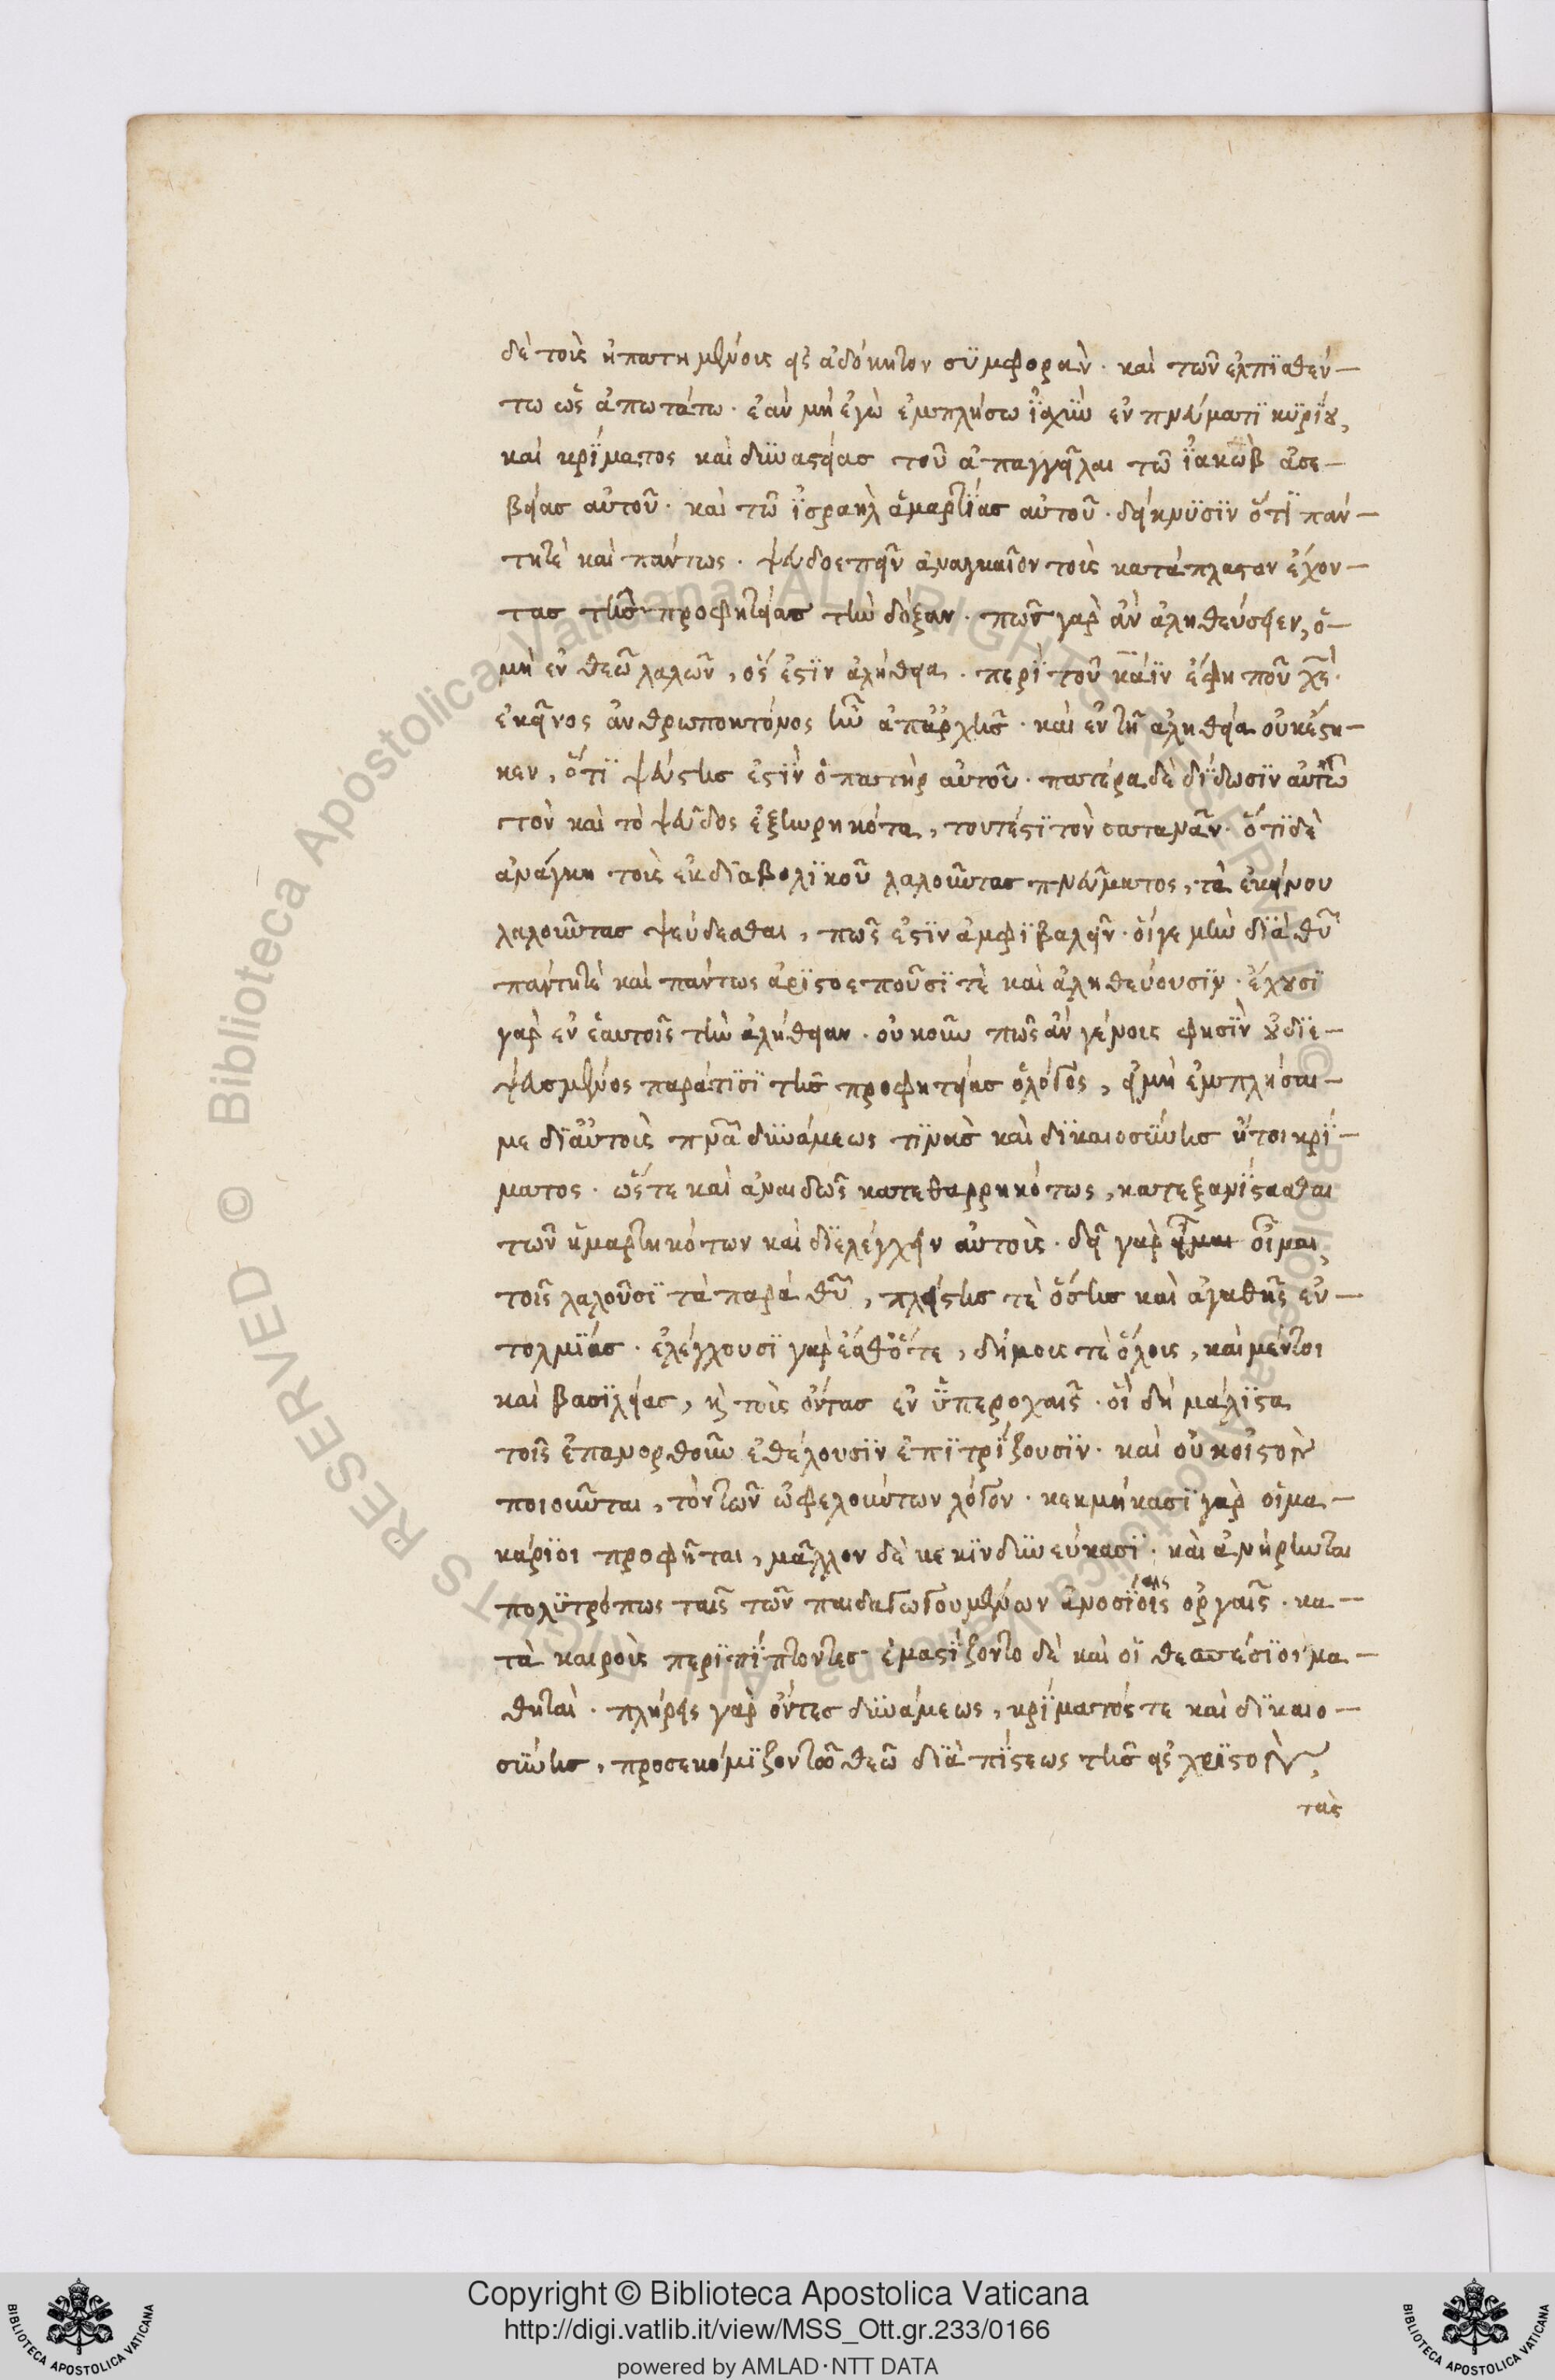 δὲ τοὺς ἠπατημένους εἰς ἀδόκητον συμφορὰν. καὶ τῶν ἐλπισθέν-
των ὡς ἀπωτάτω. ἐὰν μὴ ἐγὼ ἐμπλήσω ἰσχὺν ἐν πνεύματι κυρίου,
καὶ κρίματος καὶ δυναστείας τοῦ ἀπαγγεῖλαι τῶ ἰακὼβ ἀσε-
βείας αὐτοῦ. καὶ τῶ ἰσραὴλ ἁμαρτίας αὐτοῦ. δείκνυσιν ὅτι πάν-
τητὲ καὶ πάντως. ψευδοεπεῖν ἀναγκαῖον τοὺς κατάπλαστον ἔχον-
τας τῆς προφητείας τὴν δόξαν. πῶς γὰρ ἂν ἀληθεύσειεν, ὁ
μὴ ἐν θεῶ λαλῶν, ὅς ἐστιν ἀλήθεια. περὶ τοῦ κάϊν ἔφη που χς.
ἐκεῖνος ἀνθρωποκτόνος ἦν ἀπαρχῆς. καὶ ἐν τῆ ἀληθεία οὐκέστη-
κεν, ὅτι ψεύστης ἐστὶν ὁ πατὴρ αὐτοῦ. πατέρα δὲ δίδωσιν αὐτῶ
τὸν καὶ τὸ ψεῦδος ἐξευρηκότα, τουτέστι τὸν σατανᾶν. ὅτι δὲ
ἀνάγκη τοὺς ἐκ διαβολικοῦ λαλοῦντας πνεύματος, τὰ ἐκείνου
λαλοῦντας ψεύδεσθαι, πῶς ἐστιν ἀμφιβαλεῖν. οἵγε μὴν διὰ θῦ
πάντητὲ καὶ πάντως ἀριστοεποῦσί τὲ καὶ ἀληθεύουσιν. ἔχουσι
γὰρ ἐν ἑαυτοῖς τὴν ἀλήθειαν. οὐκοῦν πῶς ἂν γένοις φησὶν οὐ διε-
ψευσμένος παρά τισι τῆς προφητείας ὁ λόγος, εἰ μὴ ἐμπλήσαι-
με δι αὐτοὺς πνα δυνάμεως τινὸς καὶ δικαιοσύνης ἤτοι κρί-
ματος. ὥστε καὶ ἀναιδῶς κατεθαρρηκότως, κατεξανίστασθαι
τῶν ἡμαρτηκότων καὶ διελέγχειν αὐτοὺς. δεῖ γὰρ οἶμαι,
τοῖς λαλοῦσι τὰ παρὰ θῦ, πλείστης τὲ ὅσης καὶ ἀγαθῆς εὐ-
τολμίας. ἐλέγχουσι γὰρ ἔσθ ὅτε, δήμους τὲ ὅλους, καὶ μέντοι
καὶ βασιλέας, καὶ τοὺς ὄντας ἐν ὑπεροχαῖς. οἳ δὴ μάλιστα
τοῖς ἐπανορθοῦν ἐθέλουσιν ἐπιτρίζουσιν. καὶ οὐκ οἰστὸν
ποιοῦνται, τὸν τῶν ὠφελούντων λόγον. κεκμήκασι γὰρ οἱ μα-
κάριοι προφῆται, μᾶλλον δὲ κεκινδυνεύκασι. καὶ ἀνήρηνται
πολυτρόπως ταῖς τῶν παιδαγωγουμένων ἀνοσίοις αις ὀργαῖς. κα-
τὰ καιροὺς περιπίπτοντες ἐμαστίζοντο δὲ καὶ οἱ θεσπέσιοι μα-
θηταὶ. πλήρεις γὰρ ὄντες δυνάμεως, κρίματός τε καὶ δικαιο-
σύνης, προσεκόμιζον τῶ θεῶ διὰ πίστεως τῆς εἰς χριστὸν,
τοὺς